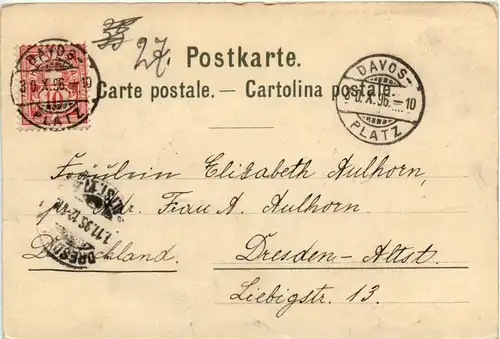 35
27.
Postkarte.
Carte postale. — Cartolina postale.
DAVOS-
30.X.96.–10
PLATZ
DAVOS-
30.X.96.–10
PLATZ
10
Fräulein Elisabeth Aulhorn,
Adr. Frau A. Aulhorn.
Deutschland. Dresden-Altst.
Liebigstr. 13.
DRESDEN
1.11.96.12
ALTST.